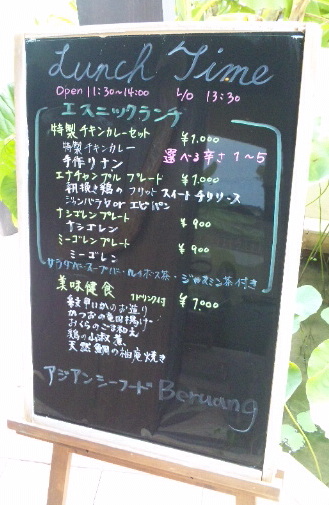 Lunch Time
Open 11:30~14:00 L/O 13:30
エスニックランチ
特製チキンカレーセット ¥1.000
特製チキンカレー 選べる辛さ 1~5
手作りナン
エナチャンプル プレート ¥1.000
粗挽き鶏のフリット スイートチリソース
ジャンバラヤor エビパン
ナシゴレンプレート ¥900
ナシゴレン
ミーゴレンプレート ¥900
ミーゴレン
サラダバー・スープバー・ルイボス茶・ジャスミン茶付き
美味健食 1ドリンク付 ¥1,000
紋甲いかのお造り
かつおの竜田揚げ
おくらのごま和え
鶏の山椒煮
天然鯛の柚庵焼き
アジアンシーフード Beruang